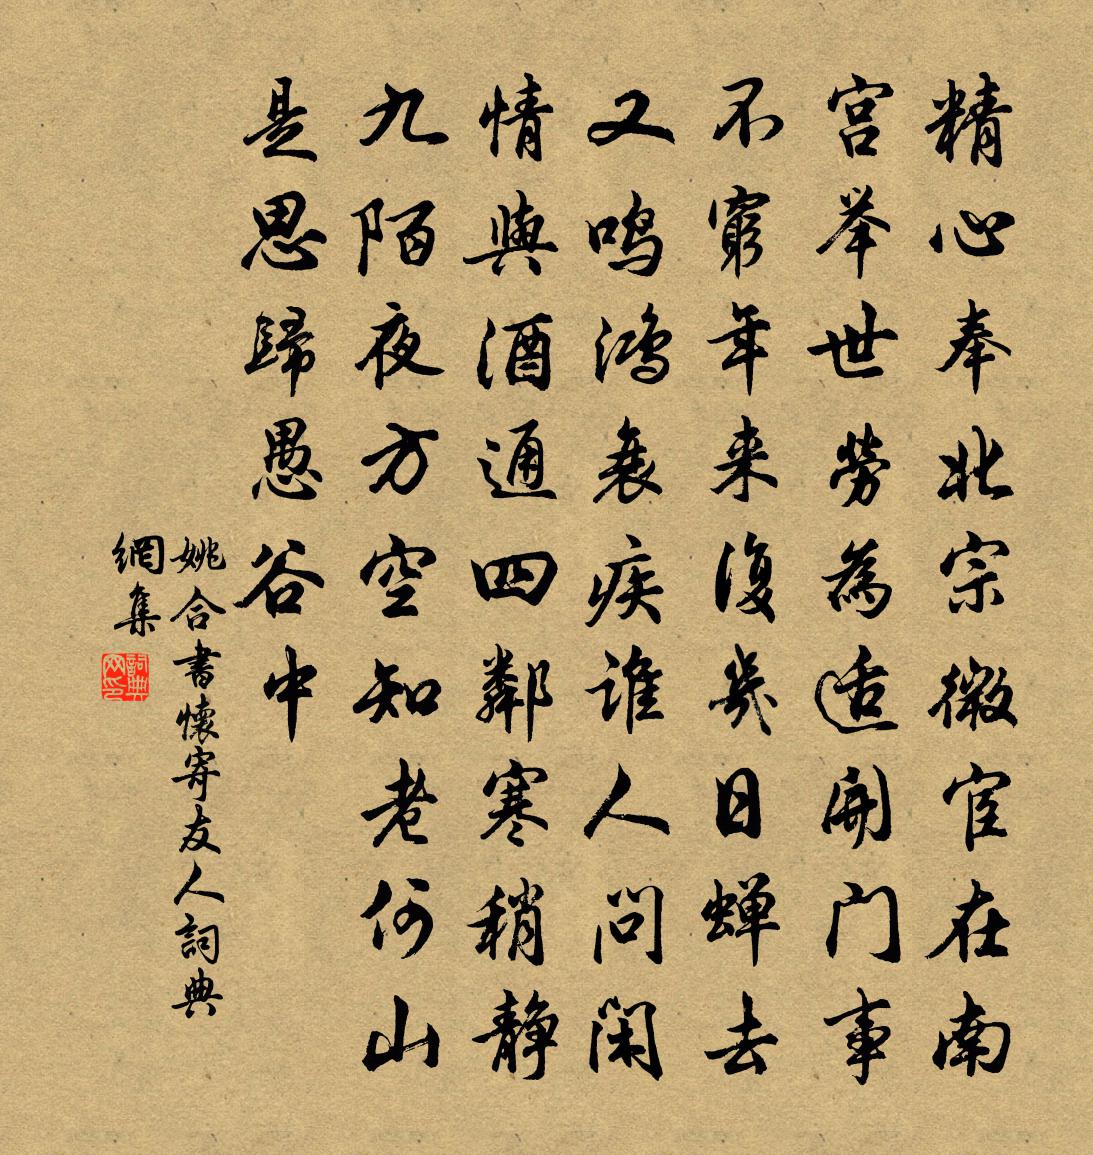 精心奉北宗微宦在南
宫举世劳為适開门事
不窮年来復幾日蝉去
又鸣鸿衰疾谁人問闲
情與酒通四鄰寒稍静
九陌夜方空知老何山
是思歸愚谷中
姚合書懷寄友人詞典
網集
詞典网印